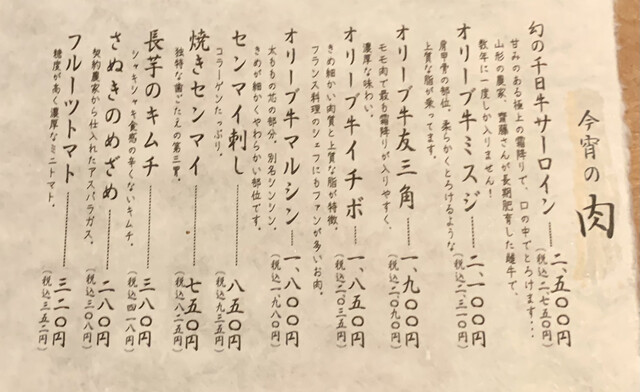 今宵の肉
幻の千日牛サーロイン……二、五〇〇円
(税込二、七五〇円)
甘みのある極上の霜降りで、口の中でとろけます…
山形の農家、齋藤さんが長期肥育した雌牛で、
数年に一度しか入りません!
オリーブ牛ミスジ……二、一〇〇円
(税込二、三一〇円)
肩甲骨の部位。柔らかくとろけるような
上質な脂が乗ってます。
オリーブ牛友三角……一、九〇〇円
(税込二、〇九〇円)
モモ肉で最も霜降りが入りやすく、
濃厚な味わい。
オリーブ牛イチボ……一、八五〇円
(税込二、〇三五円)
きめ細かい肉質と上質な脂が特徴。
フランス料理のシェフにもファンが多いお肉。
オリーブ牛マルシン……一、八〇〇円
(税込一、九八〇円)
太ももの芯の部分。別名シンシン。
きめが細かくやわらかい部位です。
センマイ刺し……八五〇円
(税込九三五円)
コラーゲンたっぷり。
焼きセンマイ……七五〇円
(税込八二五円)
独特な歯ごたえの第三胃。
長芋のキムチ……三八〇円
(税込四一八円)
シャキシャキ食感の辛くないキムチ。
さぬきのめざめ……二八〇円
(税込三〇八円)
契約農家から仕入れたアスパラガス。
フルーツトマト……三二〇円
(税込三五二円)
糖度が高く濃厚なミニトマト。